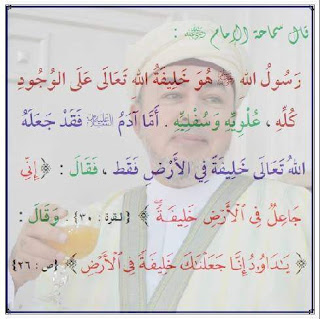 قال سماحة الإمام ﷺ :
رَسُولُ الله ﷺ هُوَ خَلِيفَةُ الله تَعَالَى عَلَى الوُجُودِ
كُلِّهِ ، عُلْوِيِّهِ وَسُفْلِيِّهِ . أَمَّا آدَمُ فَقَدْ جَعَلَهُ
اللهُ تَعَالَى خَلِيفَةً فِي الأَرْضِ فَقَط ، فَقَالَ : ﴿ إِنِّي
جَاعِلٌ فِي الْأَرْضِ خَلِيفَةً ﴾ [البقرة : ٣٠] . وَقَالَ :
﴿ يَا دَاوُودُ إِنَّا جَعَلْنَاكَ خَلِيفَةً فِي الْأَرْضِ ﴾ [ص : ٢٦]